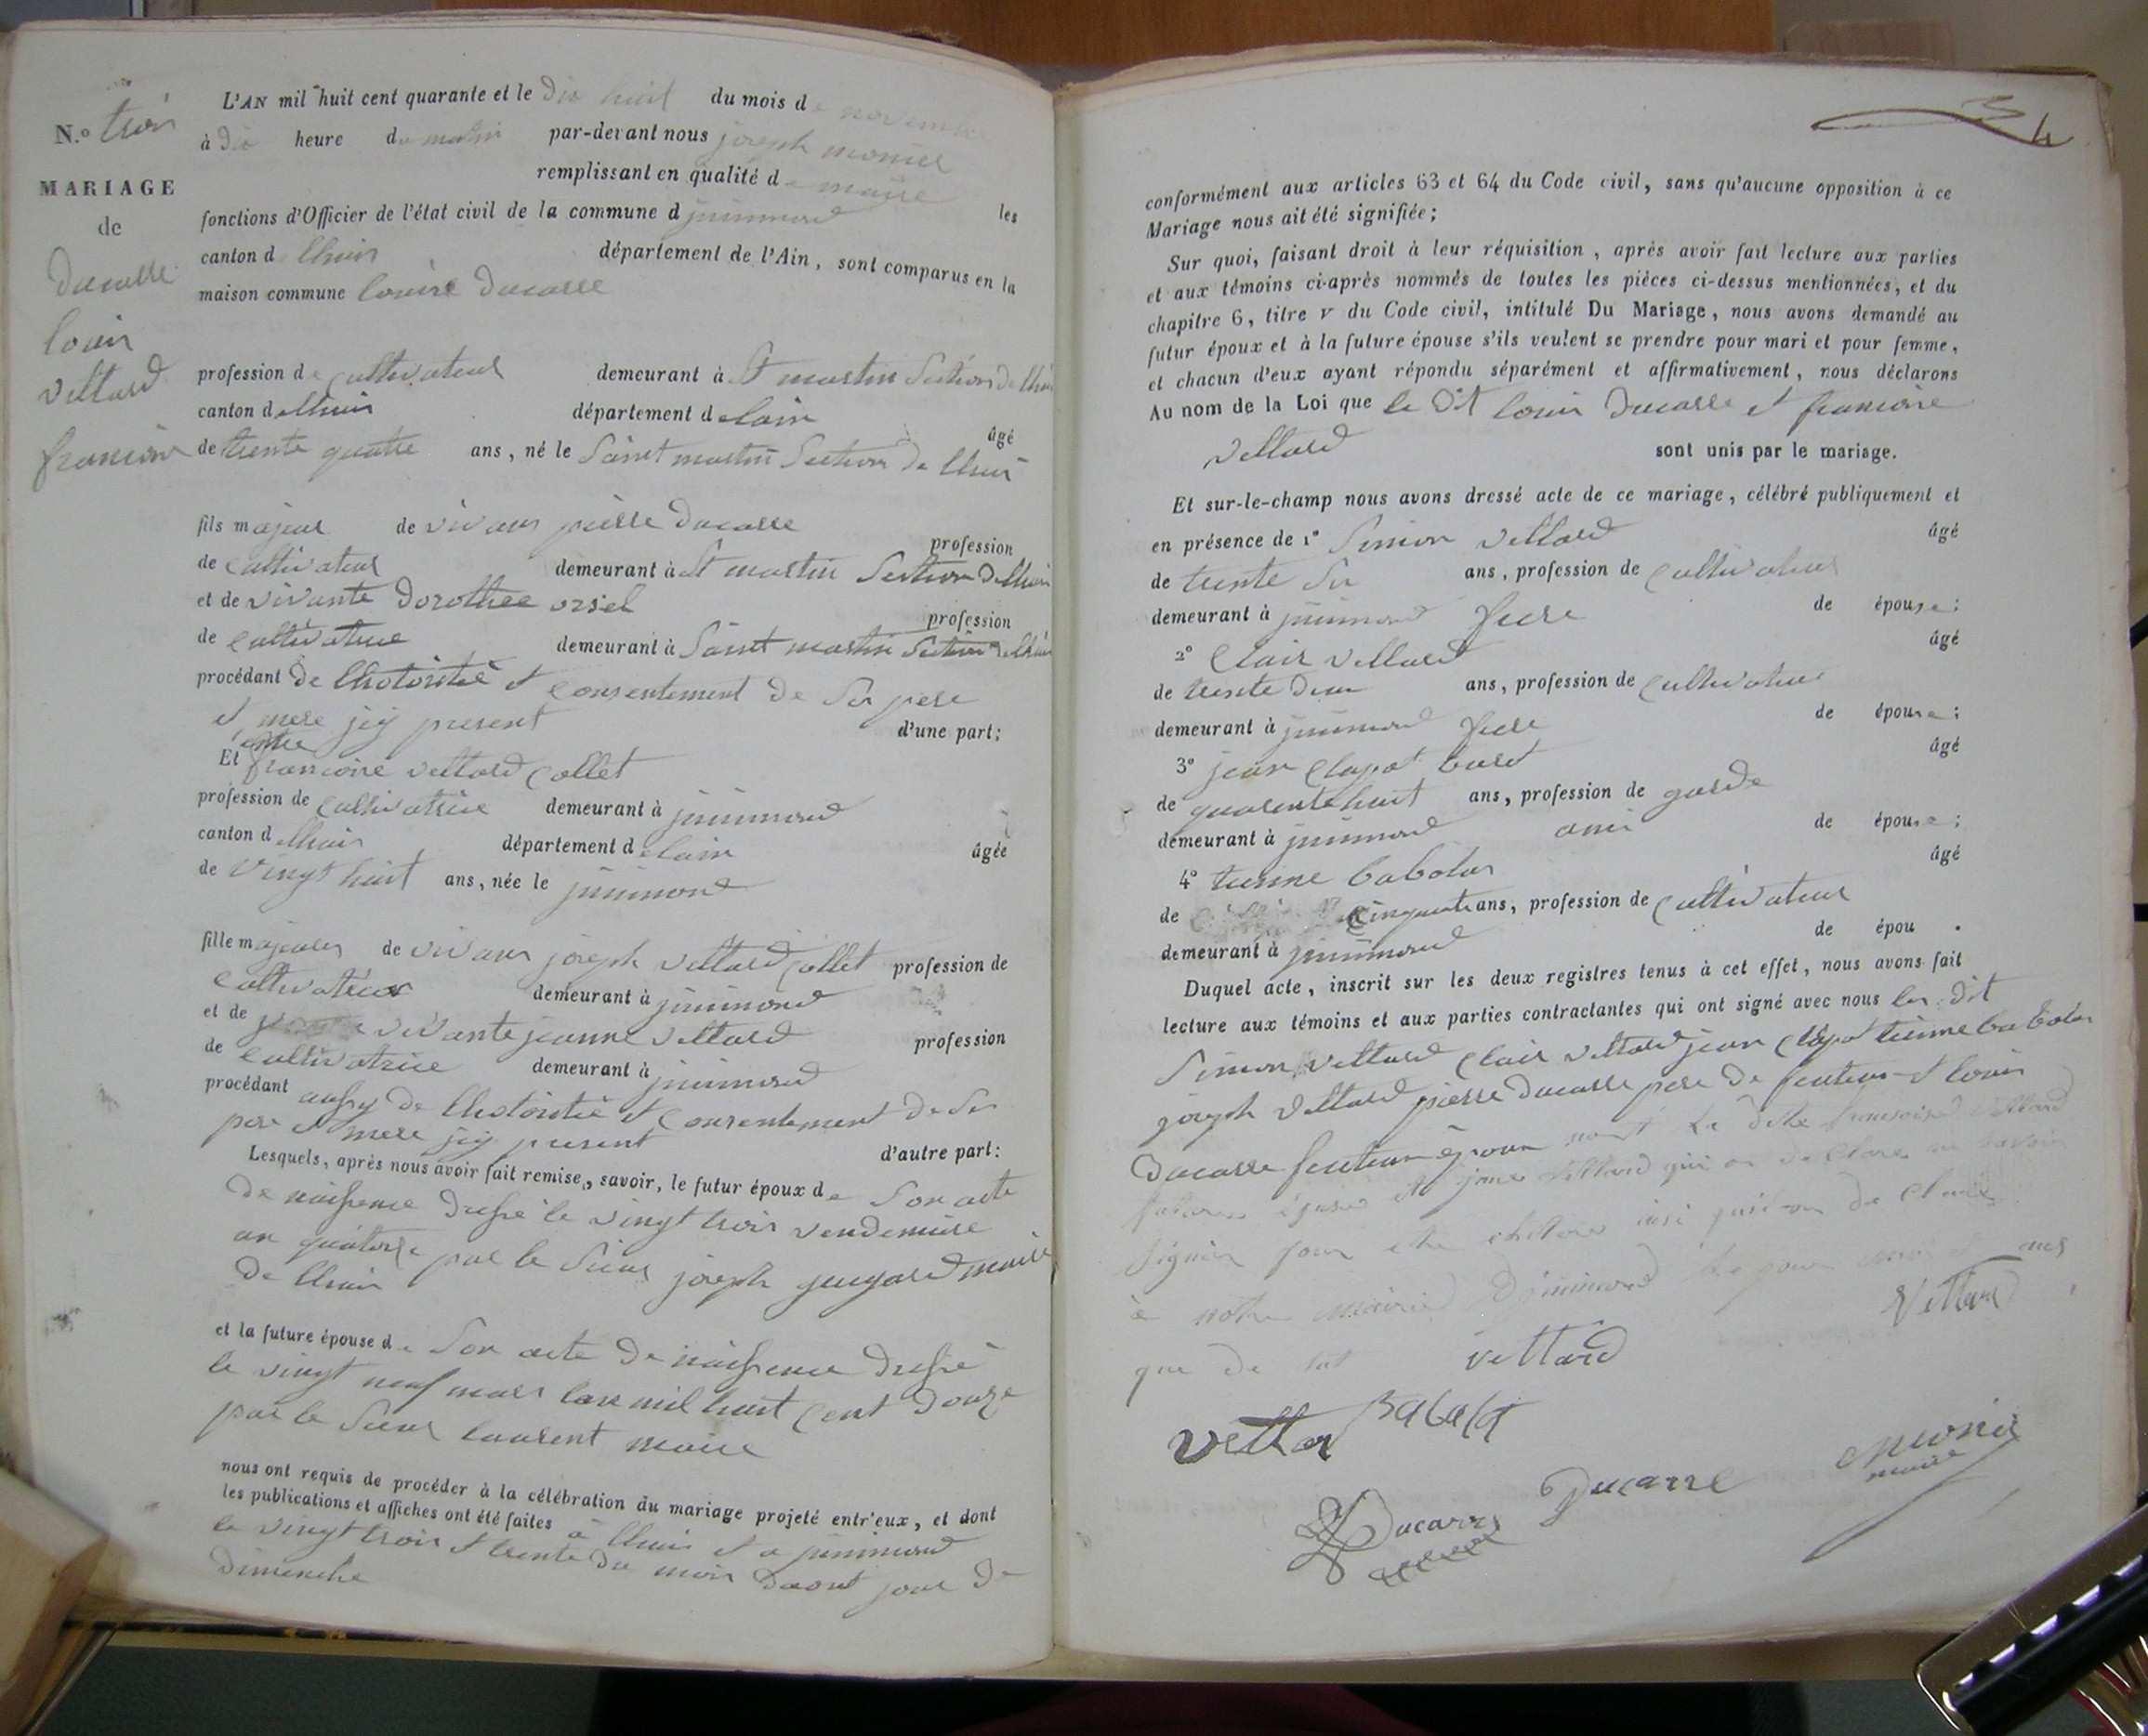 N.o trois
MARIAGE
de
Ducarre
louis
vettard
francoise
L'AN mil huit cent quarante et le dix huit du mois de novembre
à dix heure du matin par-devant nous joseph monier
remplissant en qualité de maire les
fonctions d'Officier de l'état civil de la commune d jnnimond
canton d lhuis département de l'Ain, sont comparus en la
maison commune Ducarre
profession de cultivateur demeurant à St martin Section de lhuis
canton d lhuis département de lain
âgé
de trente quatre ans, né le Saint martin Section de lhuis
fils majeur de vivans pierre Ducarre
profession
de cultivateur demeurant à St martin Section de lhuis
et de vivante dorothee orsel
profession
de cultivatrice demeurant à Saint martin Section de lhuis
procédant de lhotoritée et consentement de Ses pere
et mere jcy present d'une part;
Et entre francoise vettard collet
profession de cultivatrice demeurant à jnnimond
canton d lhuis département de lain
âgée
de vingt huit ans, née le jnnimond
fille majeure de vivans joseph vettard collet profession de
cultivateur demeurant à jnnimond
et de vivante jeanne vettard profession
de cultivatrice demeurant à jnnimond
procédant aussy de lhotoritée et consentement de Ses
pere et mere jcy present d'autre part:
Lesquels, après nous avoir fait remise, savoir, le futur époux de Son acte
de naissence dressé le vingt trois vendemiere
an quatorse par le Sieur joseph maire
de lhuis
et la future épouse de Son acte de naissence dressé
le vingt neuf mars lan mil huit cent douze
par le Sieur laurent maire
nous ont requis de procéder à la célébration du mariage projeté entr'eux, et dont
les publications et affiches ont été faites à lhuis et a jnnimond
le vingt trois et trente du mois daout jour de
dimenche
4
conformément aux articles 63 et 64 du Code civil, sans qu'aucune opposition à ce
Mariage nous ait été signifiée;
Sur quoi, faisant droit à leur réquisition, après avoir fait lecture aux parties
et aux témoins ci-après nommés de toutes les pièces ci-dessus mentionnées, et du
chapitre 6, titre V du Code civil, intitulé Du Mariage, nous avons demandé au
futur époux et à la future épouse s'ils veulent se prendre pour mari et pour femme,
et chacun d'eux ayant répondu séparément et affirmativement, nous déclarons
Au nom de la Loi que le dit louis Ducarre et francoise
vettard sont unis par le mariage.
Et sur-le-champ nous avons dressé acte de ce mariage, célébré publiquement et
en présence de 1° Simon vettard âgé
de trente Six ans, profession de cultivateur
demeurant à jnnimond frere de épouse:
2° Clair vettard âgé
de trente deux ans, profession de cultivateur
demeurant à jnnimond frere de épouse:
3° jean Clapot buret âgé
de quarente huit ans, profession de garde
demeurant à jnnimond ami de épouse:
4° tienne babolat âgé
de cinquante ans, profession de cultivateur
demeurant à jnnimond de épou .
Duquel acte, inscrit sur les deux registres tenus à cet effet, nous avons fait
lecture aux témoins et aux parties contractantes qui ont signé avec nous les dit
Simon vettard Clair vettard jean Clapot tienne babolat
joseph vettard pierre Ducarre pere de et louis
Ducarre époux la dite francoise vettard
future épouse vettard qui on de savoir
signier pour de
à notre mairie
que de
vettard
vettard
vettar
Babolat
Ducarre
Ducarre
Monier
maire